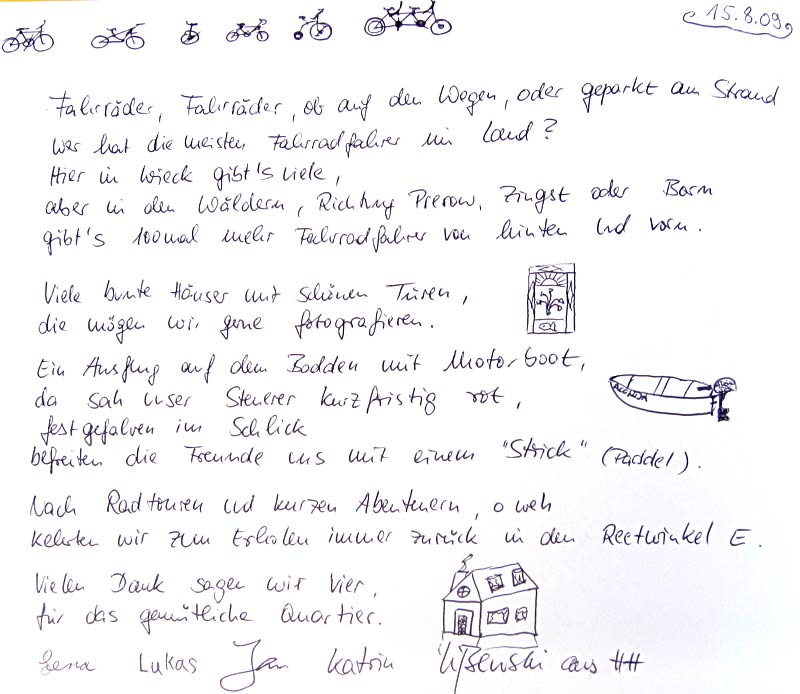 15.8.09
Fahrräder, Fahrräder, ob auf den Wegen, oder geparkt am Strand
wer hat die meisten Fahrradfahrer im Land?
Hier in Wieck gibt's viele,
aber in den Wäldern, Richtung Prerow, Zingst oder Born
gibt's 100mal mehr Fahrradfahrer von hinten und vorn.
Viele bunte Häuser mit schönen Türen,
die mögen wir gerne fotografieren.
Ein Ausflug auf dem Bodden mit Motorboot,
da sah unser Steuerer kurzfristig rot,
festgefahren im Schlick
befreiten die Freunde uns mit einem "Strick" (Paddel).
Nach Radtouren und kurzen Abenteuern, o weh
kehrten wir zum Erholen immer zurück in den Reetwinkel E.
Vielen Dank sagen wir vier,
für das gemütliche Quartier.
Lena Lukas Jan Katrin aus HH